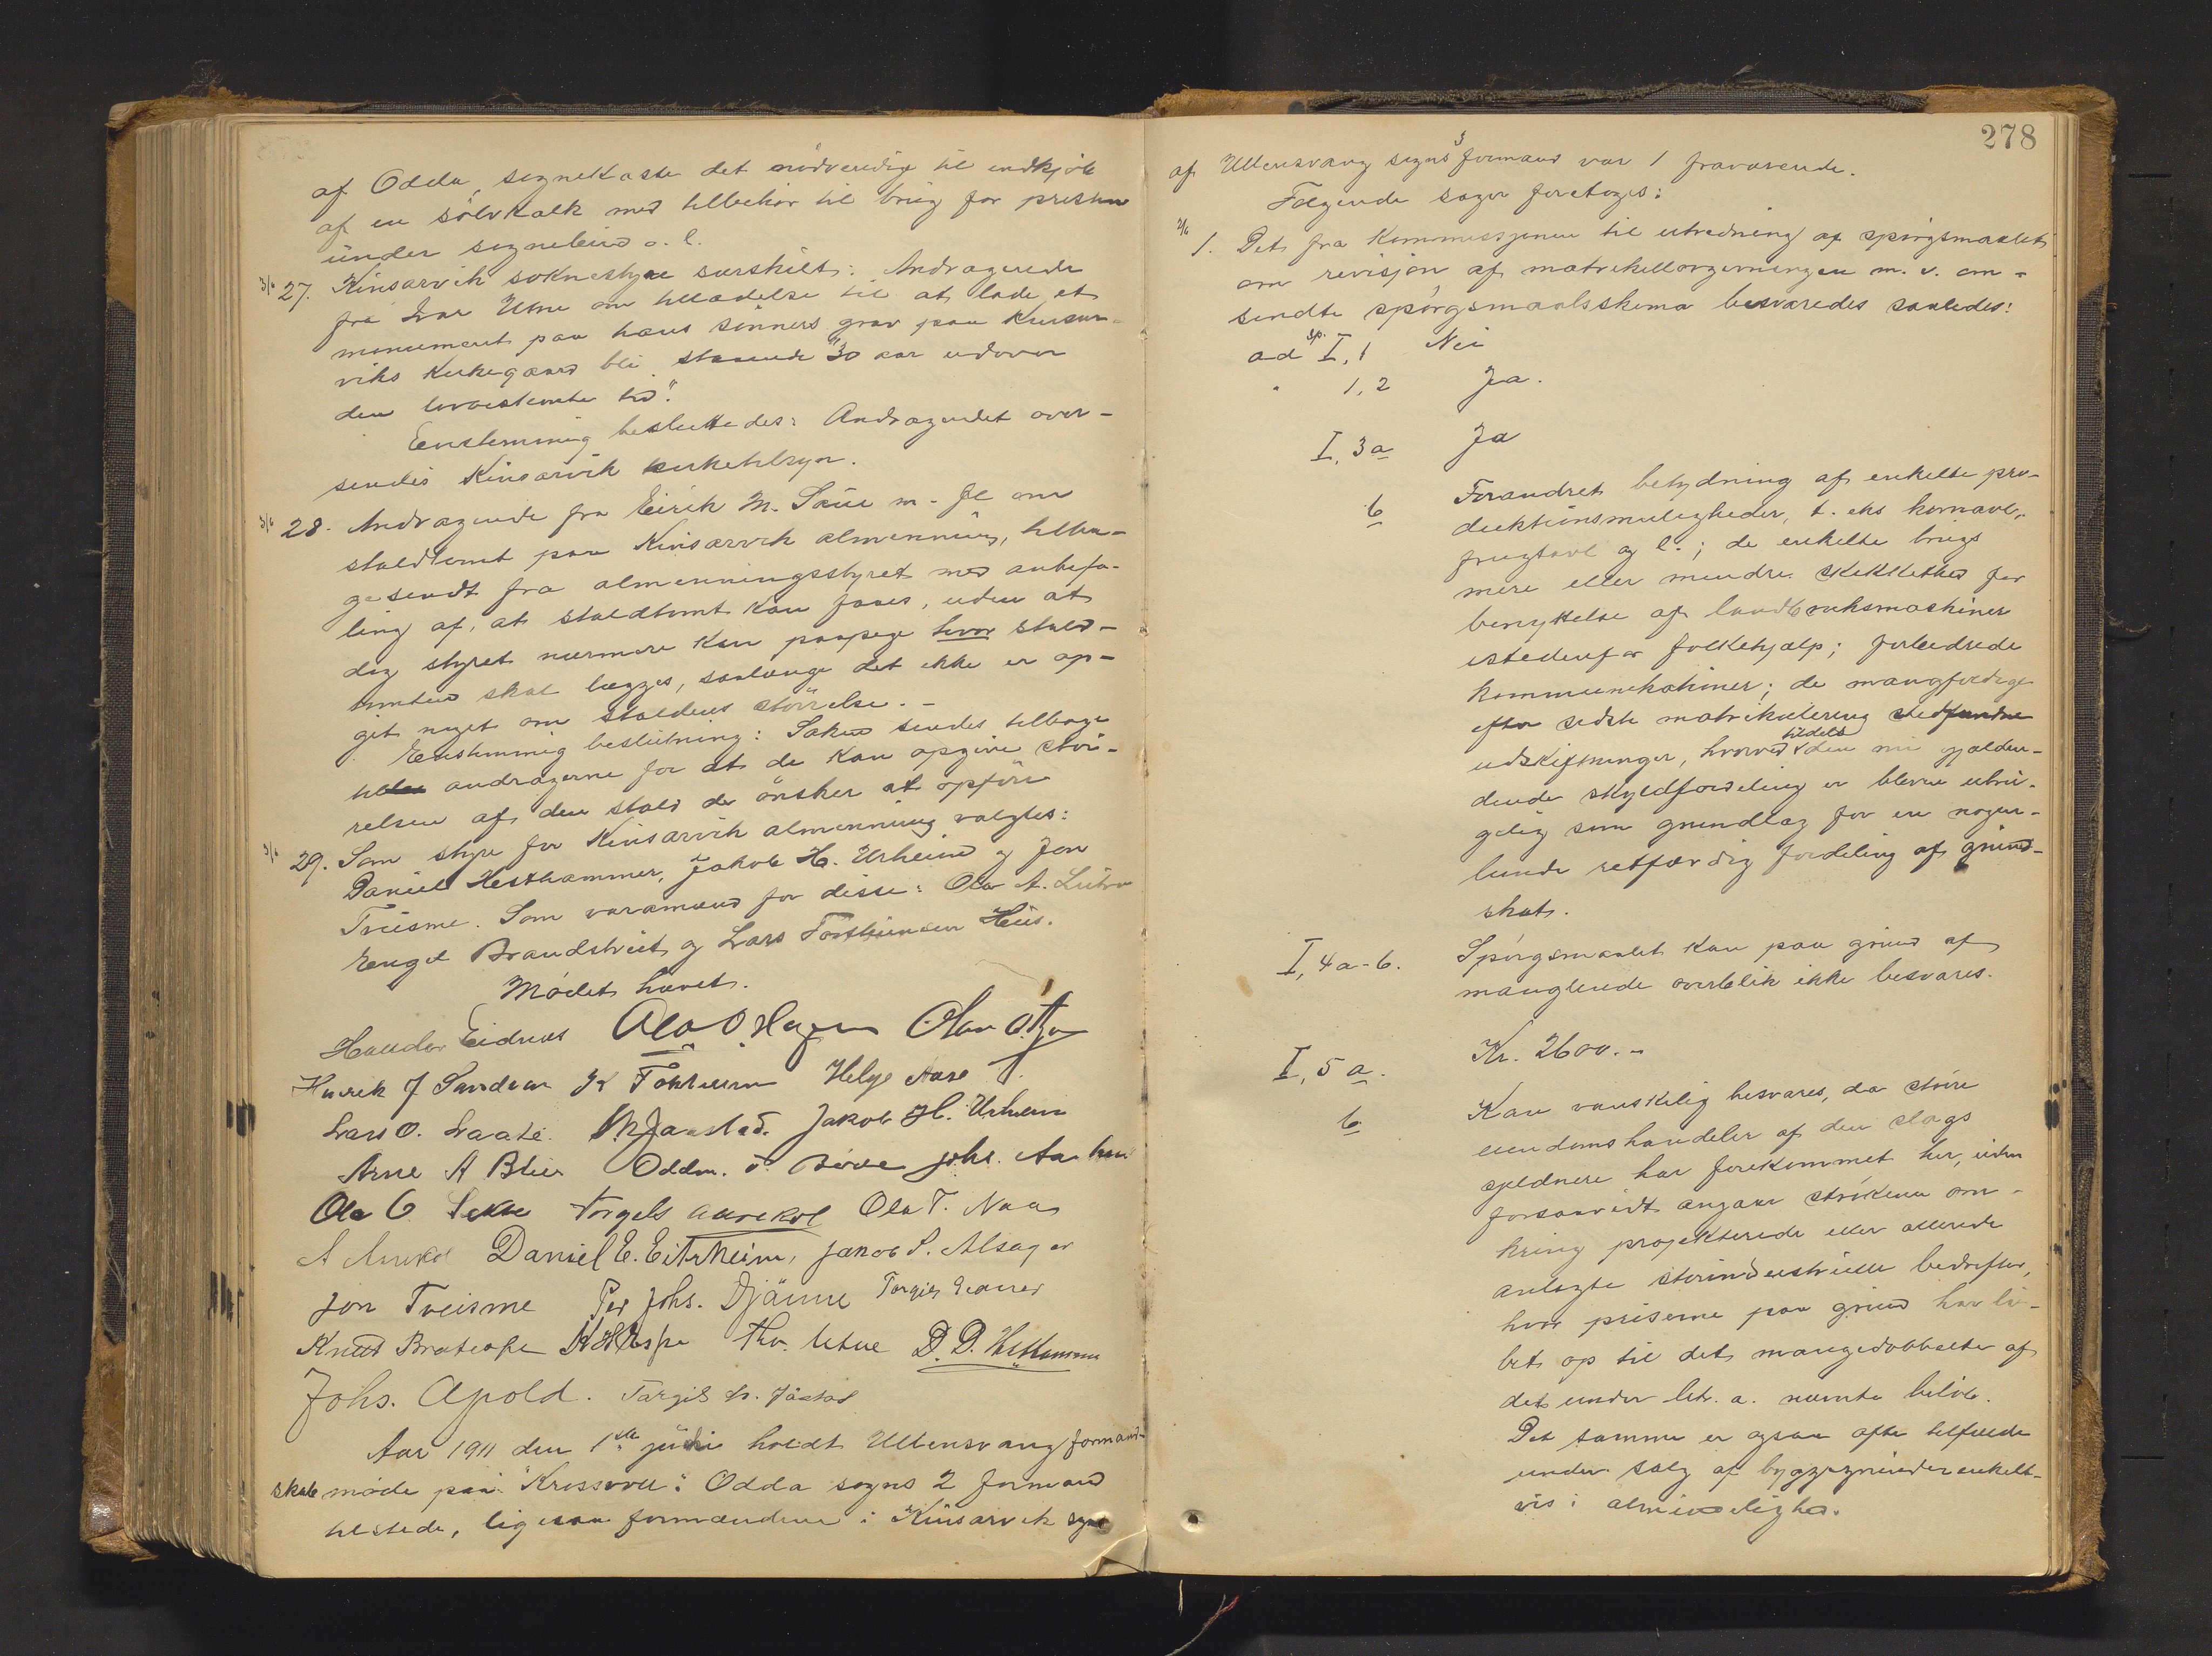 af Odda sognekasse det nødvendige til indkjøb
af en sølvkalk med tilbehør til brug for presten
under sognebud o. l.
3/6 27. Kinsarvik soknestyre særskilt: Andragende
fra Ivar Utne om tilladelse til at lade et
monument paa hans sønners grav paa Kinsar-
viks kirkegaard bli staaende "30 aar udover
den lovbestemte tid".
Enstemmig besluttedes: Andragendet over-
sendes Kinsarvik kirketilsyn.
3/6 28. Andragende fra Eirik M. Saue m. fl om
staldtomt paa Kinsarvik almenning, tilba-
gesendt fra almenningsstyret med anbefa-
ling af, at staldtomt kan faaes, uden at
dog styret nærmere kan paapege hvor stald-
tomten skal lægges, saalænge det ikke er op-
git noget om staldens størrelse. -
Enstemmig beslutning: Saken sendes tilbage
til andragerne for at de kan opgive stør-
relsen af den stald de ønsker at opføre
3/6 29. Som styre for Kinsarvik almenning valgtes:
Daniel Hesthammer, Jakob H. Urheim og Jon
Treisme. Som varamænd for disse: Ola A.
Engel Brandstveit og Lars Torsteinsen Hus.
Mødet hævet.
Halldor Eidnes Ola O. Hagen Olav
Henrik J Sandven K Tokheim Helge Aase
Lars O. Laate. Jaastad. Jakob H. Urheim
Arne A Bleie Oddm. Johs. Aarhus
Ola O. Sekse Torgels Aurekol Ola T. Naa
A Daniel E. Eitrheim, Jakob S. Alsager
Jon Treisme Per Johs. Djønne Torgils
Knut Bratespe K H Espe Thv. Utne D. D. Hesthammer
Johs. Apold. Torgils Jåstad
Aar 1911 den 1ste juli holdt Ullensvang formand-
skab møde paa "Krossvoll". Odda sogns 2 formænd
tilstede, ligesaa formændene i Kinsarvik sogn
278
af Ullensvang sogns 3 formænd var 1 fraværende.
Følgende sager foretoges:
1. Det fra Kommissjonen til utredning af spørgsmaalet
om revisjon af matrikellovgivningen m. v. om-
sendte spørgsmaalsskema besvaredes saaledes:
ad sp. I, 1 Nei
" 1, 2 Ja.
I, 3 a Ja
b Forandret betydning af enkelte pro-
duktionsmuligheder, t. eks kornavl,
frugtavl og l.; de enkelte brugs
mere eller mindre skikkethed for
benyttelse af landbruksmaskiner
istedenfor folkehjælp; forbedrede
kommunikationer; de mangfoldige
efter sidste matrikulering stedfundne
udskiftninger, hvorved tildels den nu gjælden-
dende skyldfordeling er bleven ubru-
gelig som grundlag for en nogen-
lunde retfærdig fordeling af grund-
skat.
I, 4 a-b. Spørgsmaalet kan paa grund af
manglende overblik ikke besvares.
I, 5 a. Kr. 2600.-
b Kan vanskelig besvares, da større
eiendomshandeler af den slags
sjeldnere har forekommet her, uden
forsaavidt angaar strøkene om-
kring projekterede eller allerede
anlagte storindustrielle bedrifter,
hvor priserne paa grund har lø-
bet op til det mangedobbelte af
det under litr. a. nævnte beløb.
Det samme er ogsaa ofte tilfælde
under salg af byggegrunder enkelt-
vis i almindelighed.